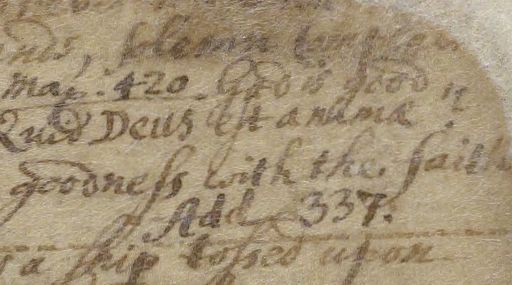 solemn temple
mag: 420. God is good
Quid Deus est animæ
goodness with the faith
Add 337.
a ship tossed upon